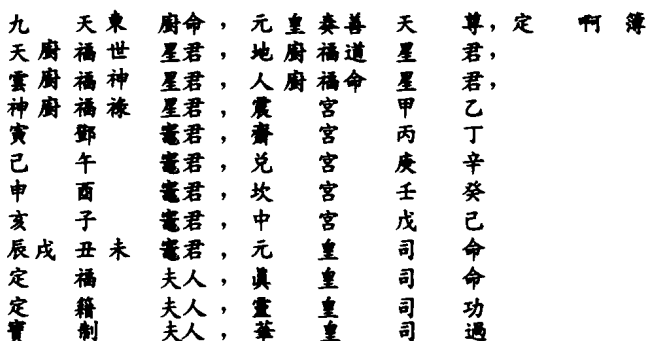 九天東廚命，元皇奏善天尊，定啊簿
天廚福世星君，地廚福道星君，
雲廚福神星君，人廚福命星君，
神廚福祿星君，震宮甲乙
寅鄧竈君，齋宮丙丁
己午竈君，兌宮庚辛
申酉竈君，坎宮壬癸
亥子竈君，中宮戊己
辰戌丑未竈君，元皇司命
定福夫人，眞皇司命
定籍夫人，靈皇司功
寶制夫人，華皇司過